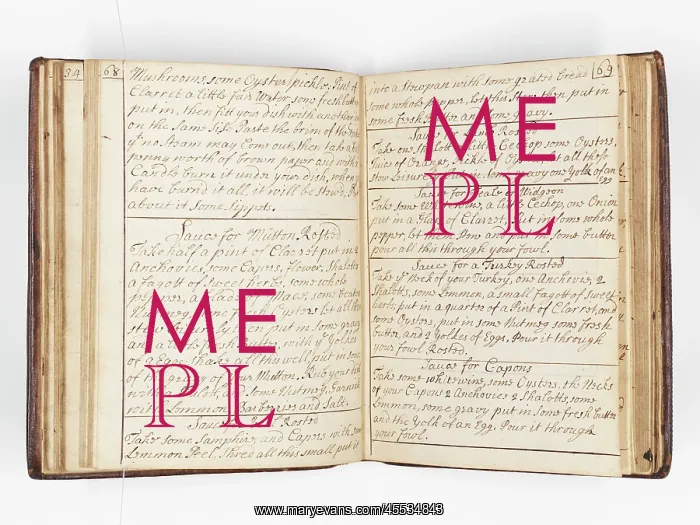 34
68
Mushrooms some Oyster pickle, Pint of
Clarret a little fair Water some fresh butter
put in, then fitt you dish with another
on the Same Size Paste the brim of the
yt no Steam may Com out, then take a
penny worth of brown paper and with a
Candle burn it under your dish, when
have burn'd it all, it will be stew'd,
about it Some Sippets.
Sauce for Mutton Rosted
Take half a pint of Clarret put in 2
Anchovies, some Capers, flower, Shalotts
a fagott of sweet herbs, some whole
pepper,
Oysters let all
then put in some gravy
butter wth ye Yolkes
of a Egg shake all this well put in some
of the gravy of your Mutton. Rub your
with a Shalott, Some Nutmeg, Garnish
with Lemmon Barberries and Salt.
Rosted
Take some Samphire, and Capers with some
Lemmon Peel, Shred all this small, put it
69
into a Stuspan with some grated bread
some whole pepper, let this Stew, then put in
some fresh butter and some gravy.
Rosted
Take one Shalott, a little Cechop, some Oysters,
Juice of Orange, let all these
Stew gravy one Yolk of an
Egg
Sauce for Teale or Widgeon
Take some White wine, a little Cechop, one Onion
put in a Glass of Clarret, Put in some whole
pepper, let them Stew and put in Some butter
pour all this through your fowl.
Sauce for a Turkey Rosted
Take ye Neck of your Turkey, one Anchovie, 2
Shalotts, some Lemmon, a small fagott of Sweet
herbs, put in a quarter of a Pint of Clarrot, and
some Oysters, put in some Nutmeg some fresh
butter, and 2 Yolkes of Eggs. Pour it through
your fowl Rosted.
Sauce for Capons
Take some white wine, some Oysters, the Necks
of your Capons 2 Anchovies 2 Shalotts, some
Lemmon, some gravy put in Some fresh butter
and the Yolk of an Egg. Pour it through
your fowl.
ME
PL
ME
PL
www.maryevans.com/45534843